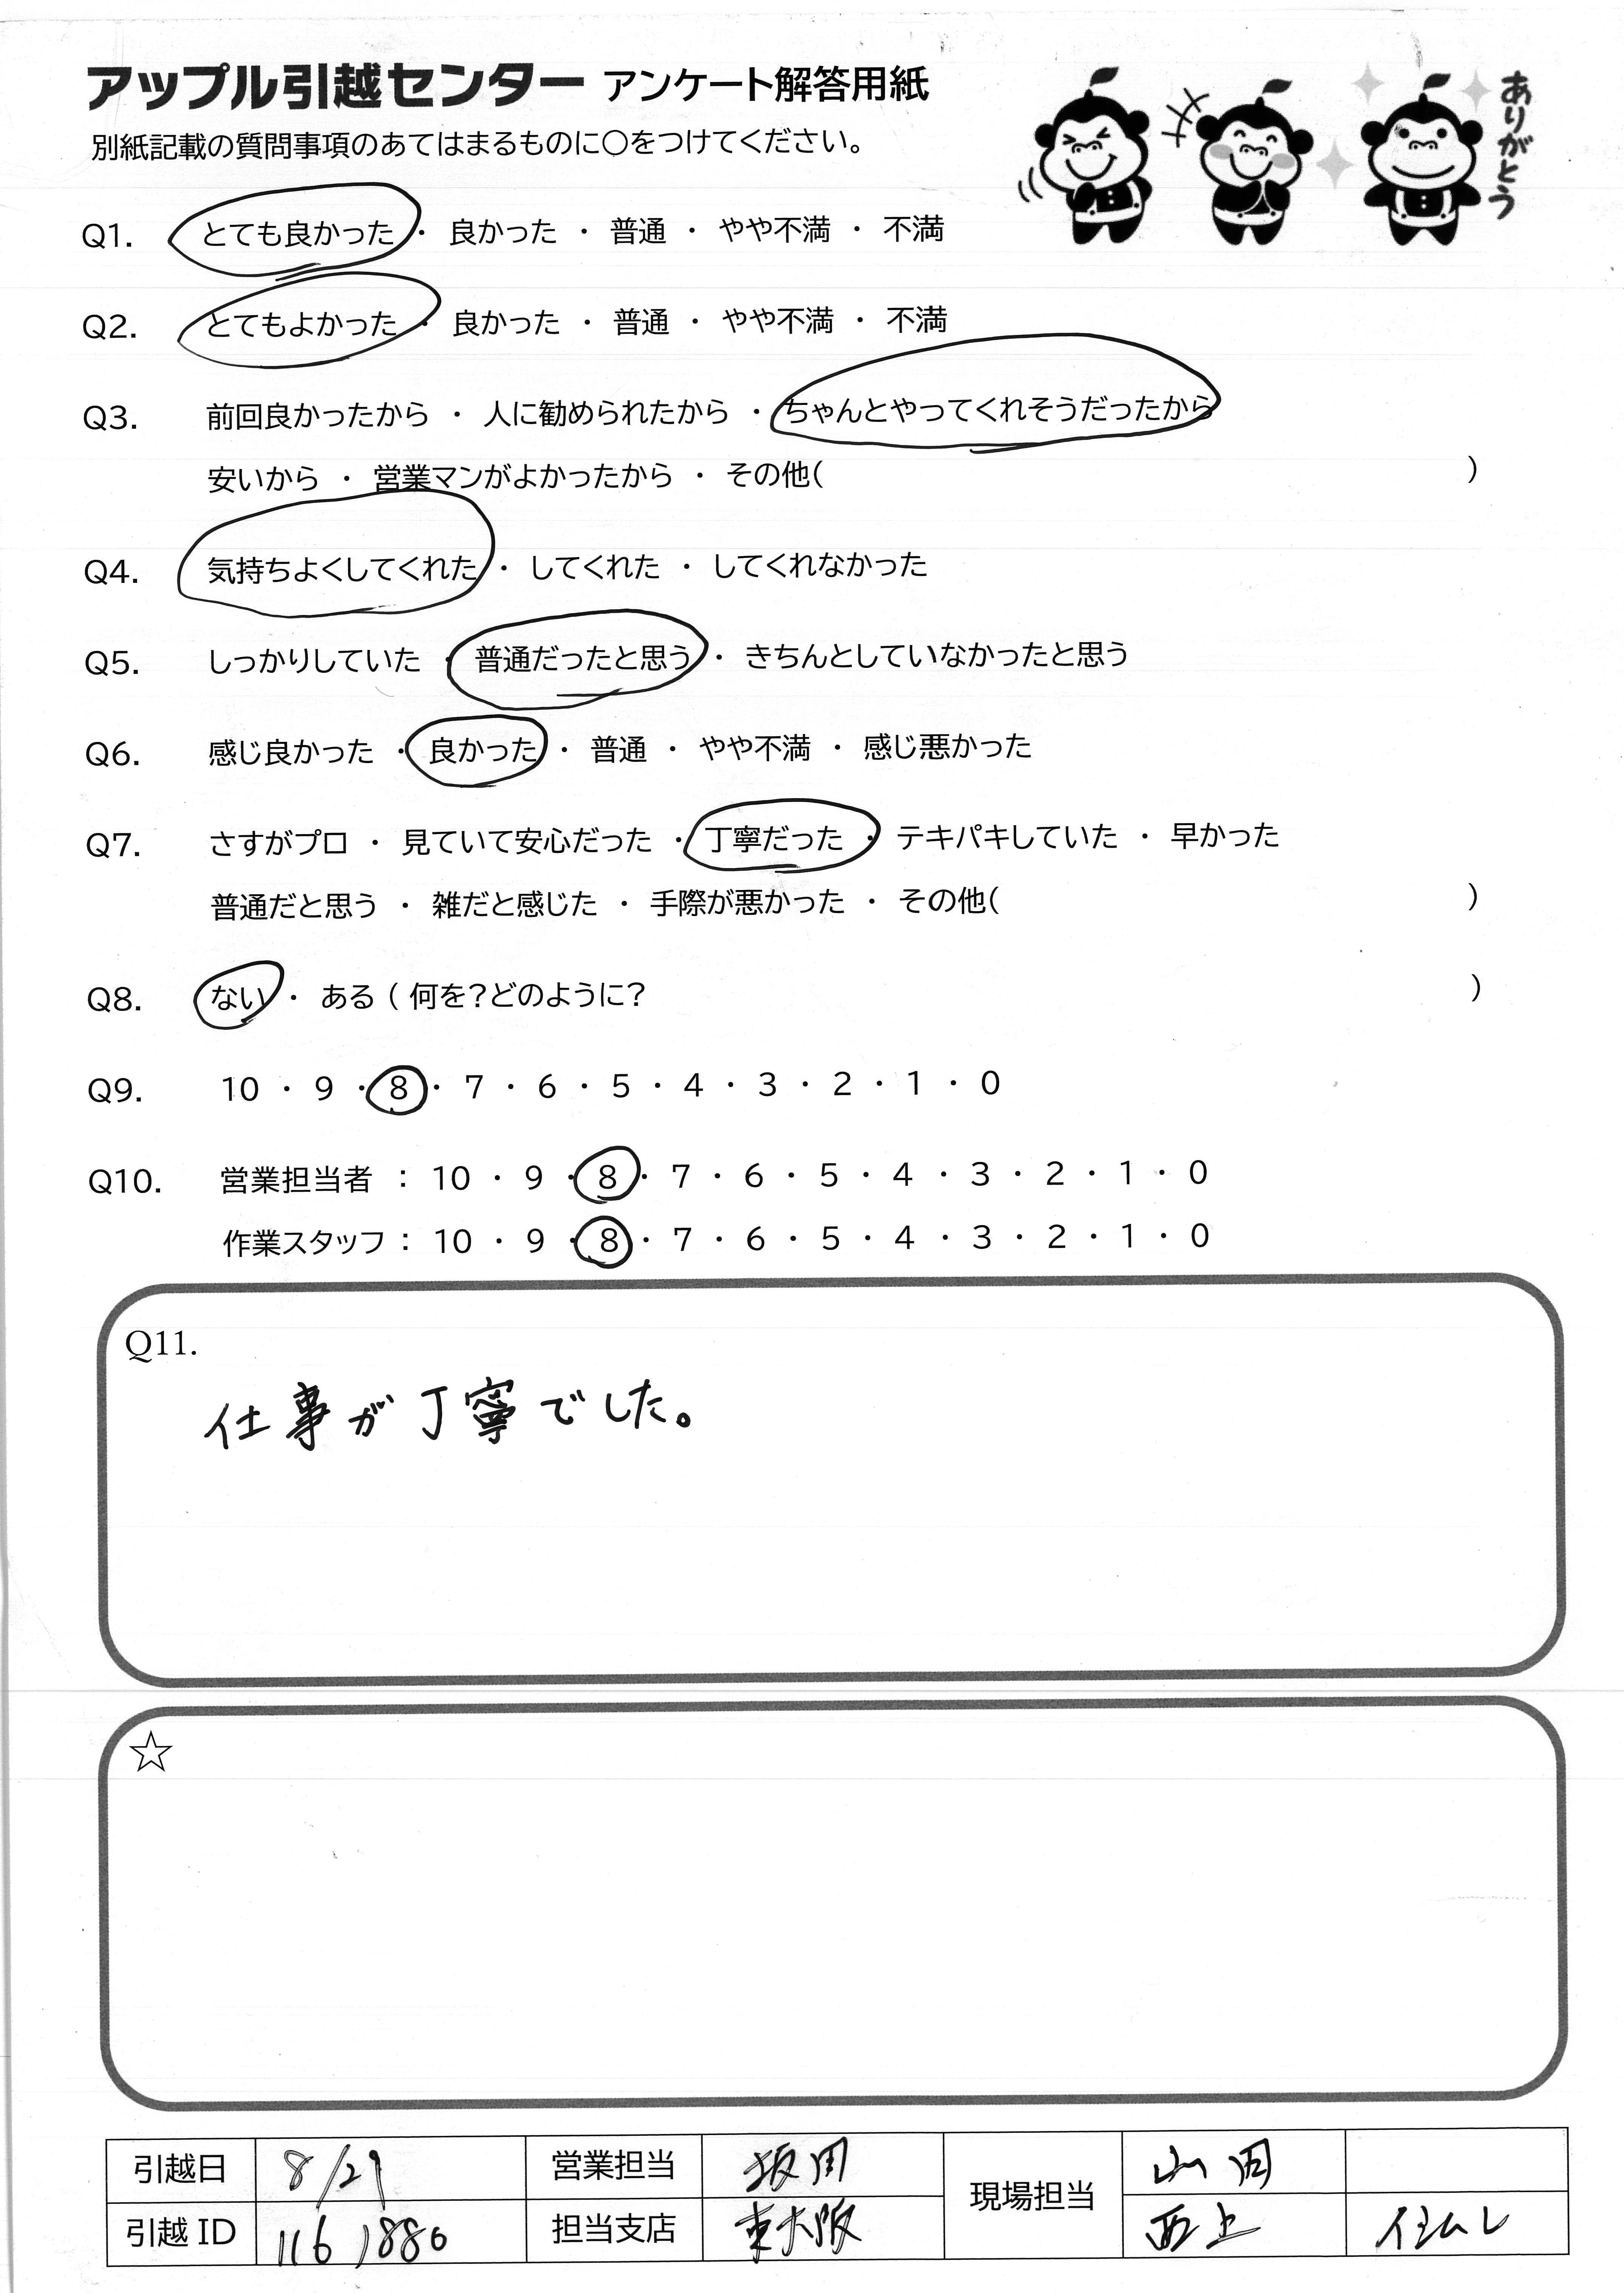 アップル引越センター アンケート解答用紙
別紙記載の質問事項のあてはまるものに○をつけてください。
ありがとう
Q1. とても良かった ・ 良かった ・ 普通 ・ やや不満 ・ 不満
Q2. とてもよかった ・ 良かった ・ 普通 ・ やや不満 ・ 不満
Q3. 前回良かったから ・ 人に勧められたから ・ ちゃんとやってくれそうだったから
安いから ・ 営業マンがよかったから ・ その他( )
Q4. 気持ちよくしてくれた ・ してくれた ・ してくれなかった
Q5. しっかりしていた ・ 普通だったと思う ・ きちんとしていなかったと思う
Q6. 感じ良かった ・ 良かった ・ 普通 ・ やや不満 ・ 感じ悪かった
Q7. さすがプロ ・ 見ていて安心だった ・ 丁寧だった ・ テキパキしていた ・ 早かった
普通だと思う ・ 雑だと感じた ・ 手際が悪かった ・ その他( )
Q8. ない ・ ある ( 何を?どのように? )
Q9. 10 ・ 9 ・ 8 ・ 7 ・ 6 ・ 5 ・ 4 ・ 3 ・ 2 ・ 1 ・ 0
Q10. 営業担当者 : 10 ・ 9 ・ 8 ・ 7 ・ 6 ・ 5 ・ 4 ・ 3 ・ 2 ・ 1 ・ 0
作業スタッフ : 10 ・ 9 ・ 8 ・ 7 ・ 6 ・ 5 ・ 4 ・ 3 ・ 2 ・ 1 ・ 0
Q11.
仕事が丁寧でした。
☆
引越日 8/29 営業担当 現場担当
引越ID 1161880 担当支店 東大阪 西上